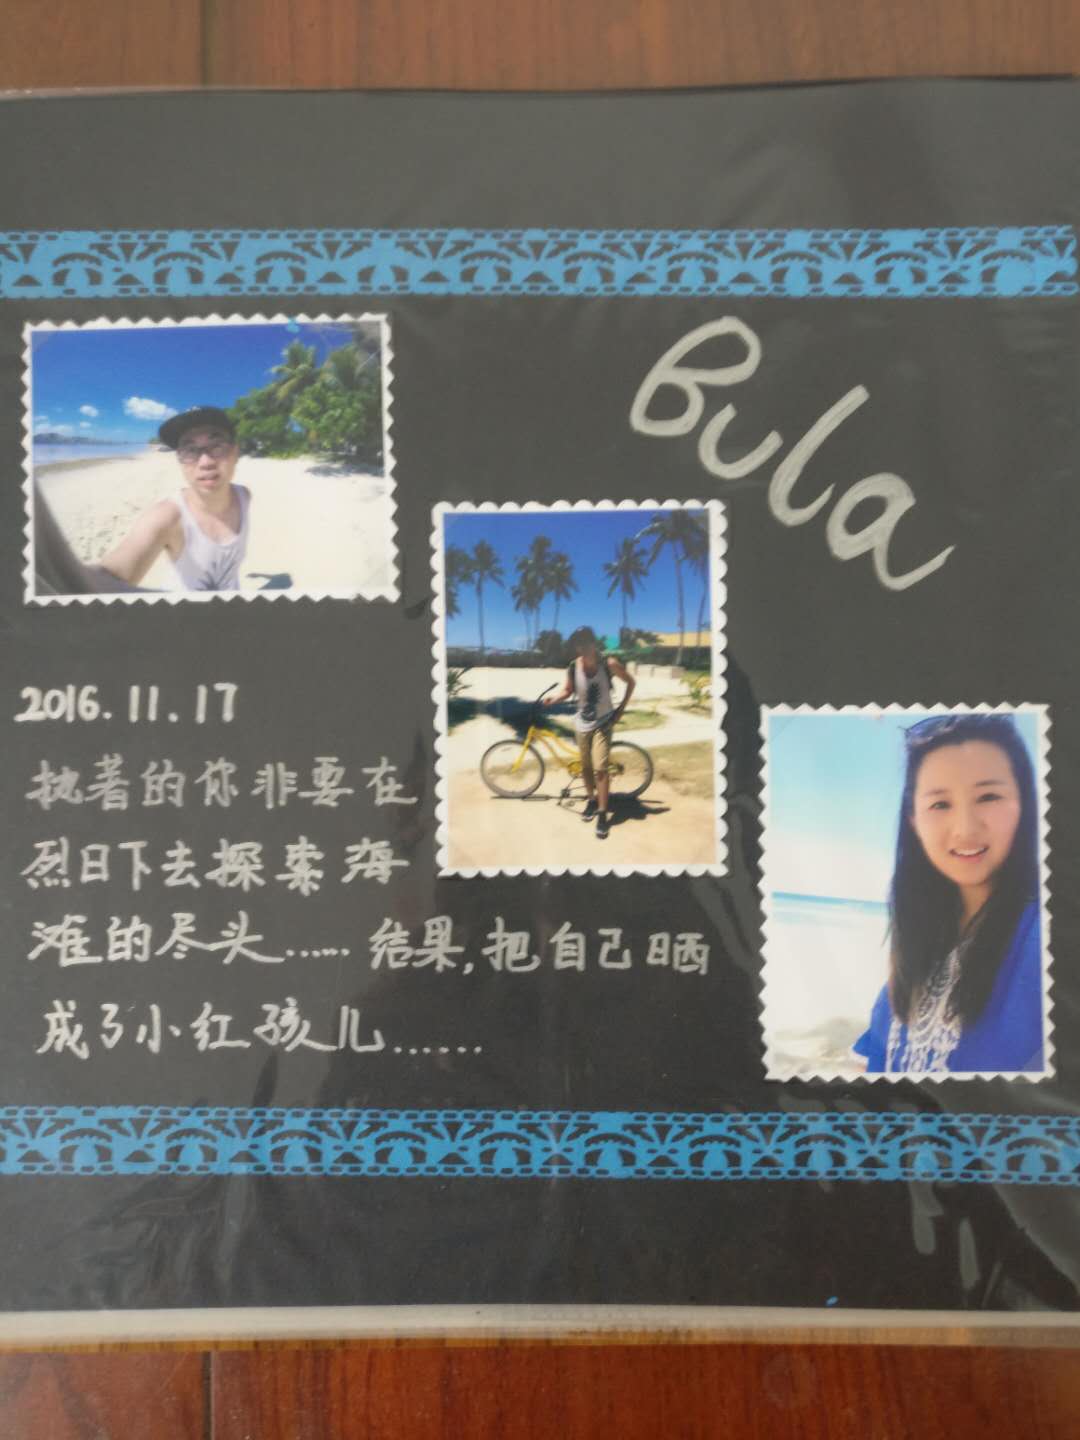 Bula
2016.11.17
执著的你非要在
烈日下去探索海
滩的尽头......结果,把自己晒
成了小红孩儿......